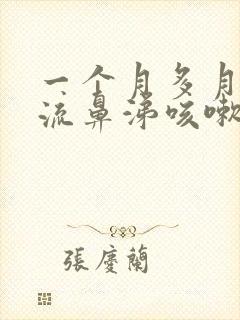 一个月多月
流鼻涕咳嗽
張慶蘭